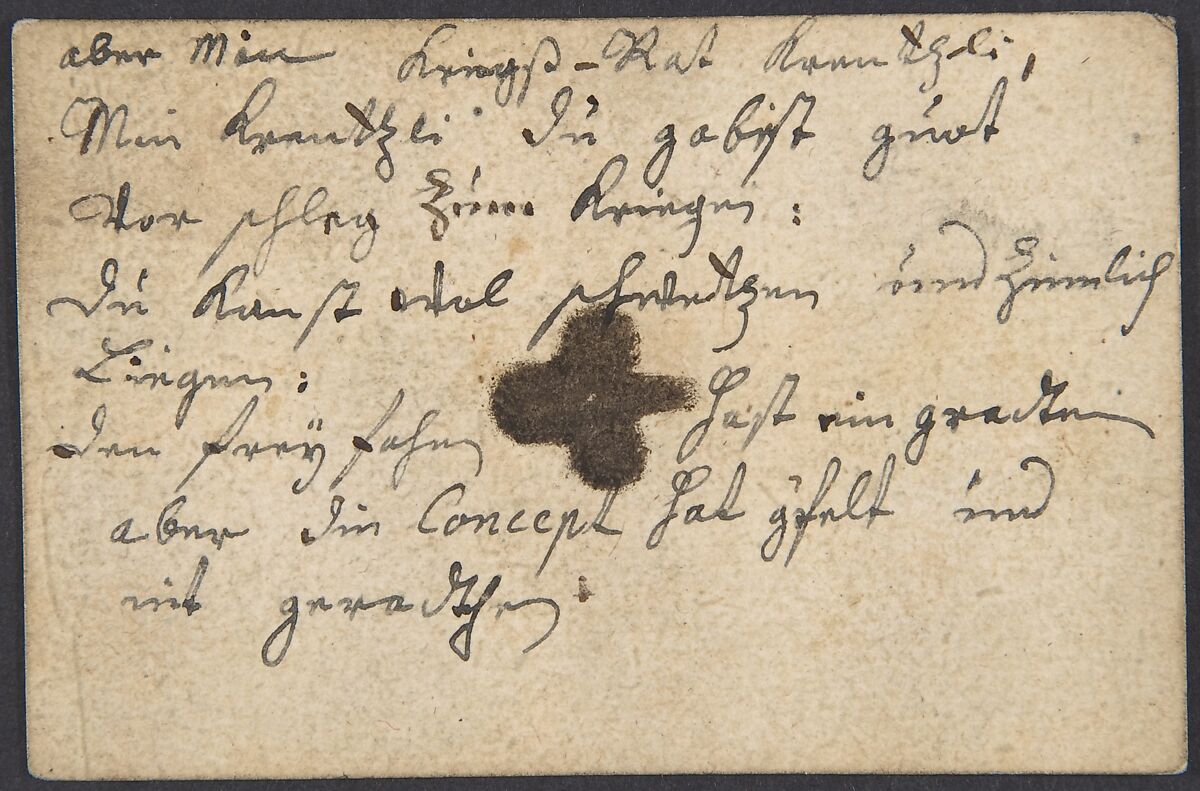 aber Min Kriegß-Rat Kreutzli,
Min Kreutzli du gabist guot
Vor schleg Zum Kriegen:
du Kanst wol schwetzen und Zimlich
Liegen:
den freÿ fahn hast ein gredten
aber din Concept hat gfelt und
nit geredthen